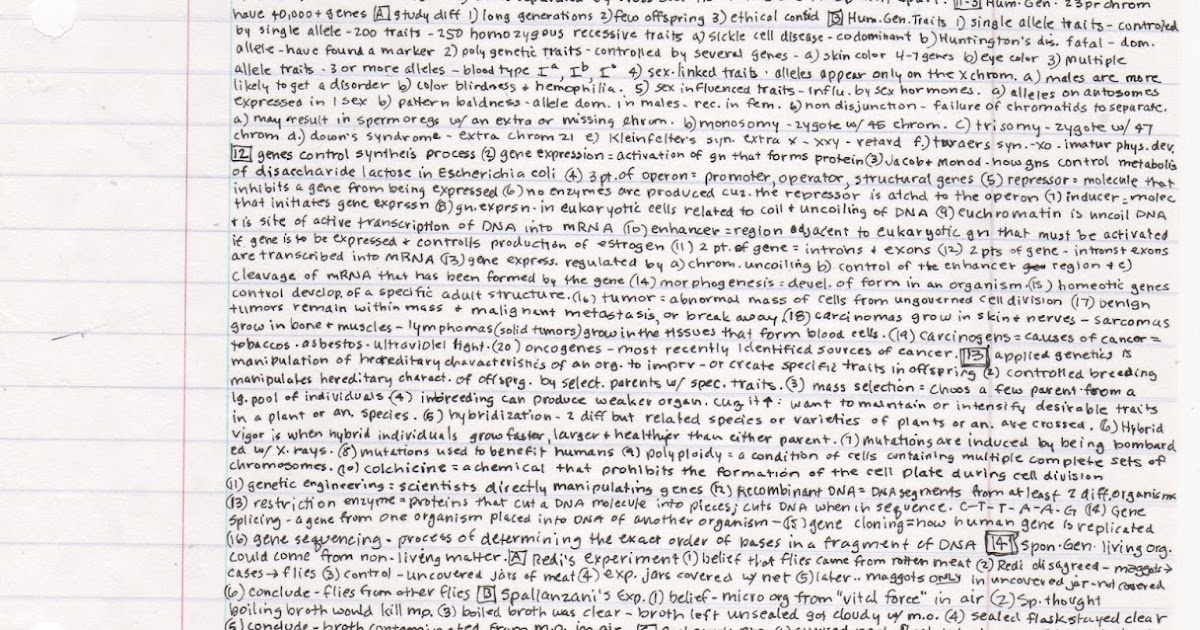 11-3 Hum. Gen. 23 pr chrom
have 40,000+ genes [A] study diff 1) long generations 2) few offspring 3) ethical consid [B] Hum. Gen. Traits 1) single allele traits - controled
by single allele - 200 traits - 250 homozygous recessive traits a) sickle cell disease - codominant b) Huntington's dis. fatal - dom.
allele - have found a marker 2) poly genetic traits - controlled by several genes - a) skin color 4-7 genes b) eye color 3) multiple
allele traits - 3 or more alleles - blood type Iᵃ, Iᵇ, I° 4) sex-linked traits - alleles appear only on the X chrom. a) males are more
likely to get a disorder b) color blindness + hemophilia. 5) sex influenced traits - influ. by sex hormones. a) alleles on autosomes
expressed in 1 sex b) pattern baldness - allele dom. in males - rec. in fem. 6) non disjunction - failure of chromatids to separate.
a) may result in sperm or egs w/ an extra or missing chrom. b) monosomy - zygote w/ 45 chrom. c) trisomy - zygote w/ 47
chrom d.) down's syndrome - extra chrom 21 e) Kleinfelter's syn. extra x - xxy - retard f.) turners syn. - xo. imatur phys. dev.
[12] genes control syntheis process (2) gene expression = activation of gn that forms protein (3) Jacob + Monod - how gns control metabolis
of disaccharide lactose in Escherichia coli (4) 3 pt. of operon = promoter, operator, structural genes (5) repressor = molecule that
inhibits a gene from being expressed (6) no enzymes are produced cuz. the repressor is atchd to the operon (7) inducer = molec
that initiates gene exprssn (8) gn. exprsn. in eukaryotic cells related to coil + uncoiling of DNA (9) euchromatin is uncoil DNA
+ is site of active transcription of DNA into mRNA (10) enhancer = region adjacent to eukaryotic gn that must be activated
if gene is to be expressed + controlls production of estrogen (11) 2 pt. of gene = introns + exons (12) 2 pts of gene - introns + exons
are transcribed into mRNA (13) gene express. regulated by a) chrom. uncoiling b) control of the enhancer region + c)
cleavage of mRNA that has been formed by the gene (14) morphogenesis = devel. of form in an organism. (15) homeotic genes
control develop. of a specific adult structure. (16) tumor = abnormal mass of cells from ungoverned cell division (17) benign
tumors remain within mass + malignant metastasis, or break away (18) carcinomas grow in skin + nerves - sarcomas
grow in bone + muscles - lymphomas (solid tumors) grow in the tissues that form blood cells. (19) carcinogens = causes of cancer =
tobaccos - asbestos - ultraviolet light. (20) oncogenes - most recently identified sources of cancer. [13] applied genetics is
manipulation of hereditary characteristics of an org. to imprv - or create specific traits in offspring (2) controlled breeding
manipulates hereditary charact. of offsprg. by select. parents w/ spec. traits. (3) mass selection = choos a few parent from a
lg. pool of individuals (4) inbreeding can produce weaker organ. cuz it ↑: want to maintain or intensify desirable traits
in a plant or an. species. (5) hybridization - 2 diff but related species or varieties of plants or an. are crossed. (6) Hybrid
vigor is when hybrid individuals grow faster, larger + healthier than either parent. (7) mutations are induced by being bombard
ed w/ x. rays. (8) mutations used to benefit humans (9) polyploidy = a condition of cells containing multiple complete sets of
chromosomes. (10) colchicine = a chemical that prohibits the formation of the cell plate during cell division
(11) genetic engineering = scientists directly manipulating genes (12) Recombinant DNA = DNA segments from at least 2 diff. organisms
(13) restriction enzyme = proteins that cut a DNA molecule into pieces; cuts DNA when in sequence. C-T-T-A-A-G (14) Gene
splicing - a gene from one organism placed into DNA of another organism - (15) gene cloning = how human gene is replicated
(16) gene sequencing - process of determining the exact order of bases in a fragment of DNA [14] Spon. Gen. living org.
could come from non-living matter. [A] Redi's experiment (1) belief that flies came from rotten meat (2) Redi disagreed - maggots →
cases → flies (3) control - uncovered jars of meat (4) exp. jars covered w/ net (5) later.. maggots ONLY in uncovered jar - not covered
(6) conclude - flies from other flies [B] Spallanzani's Exp. (1) belief - micro org from "vital force" in air (2) Sp. thought
boiling broth would kill mo. (3) boiled broth was clear - broth left unsealed got cloudy w/ m.o. (4) sealed flask stayed clear
(5) conclude - broth contaminated from m.o. in air